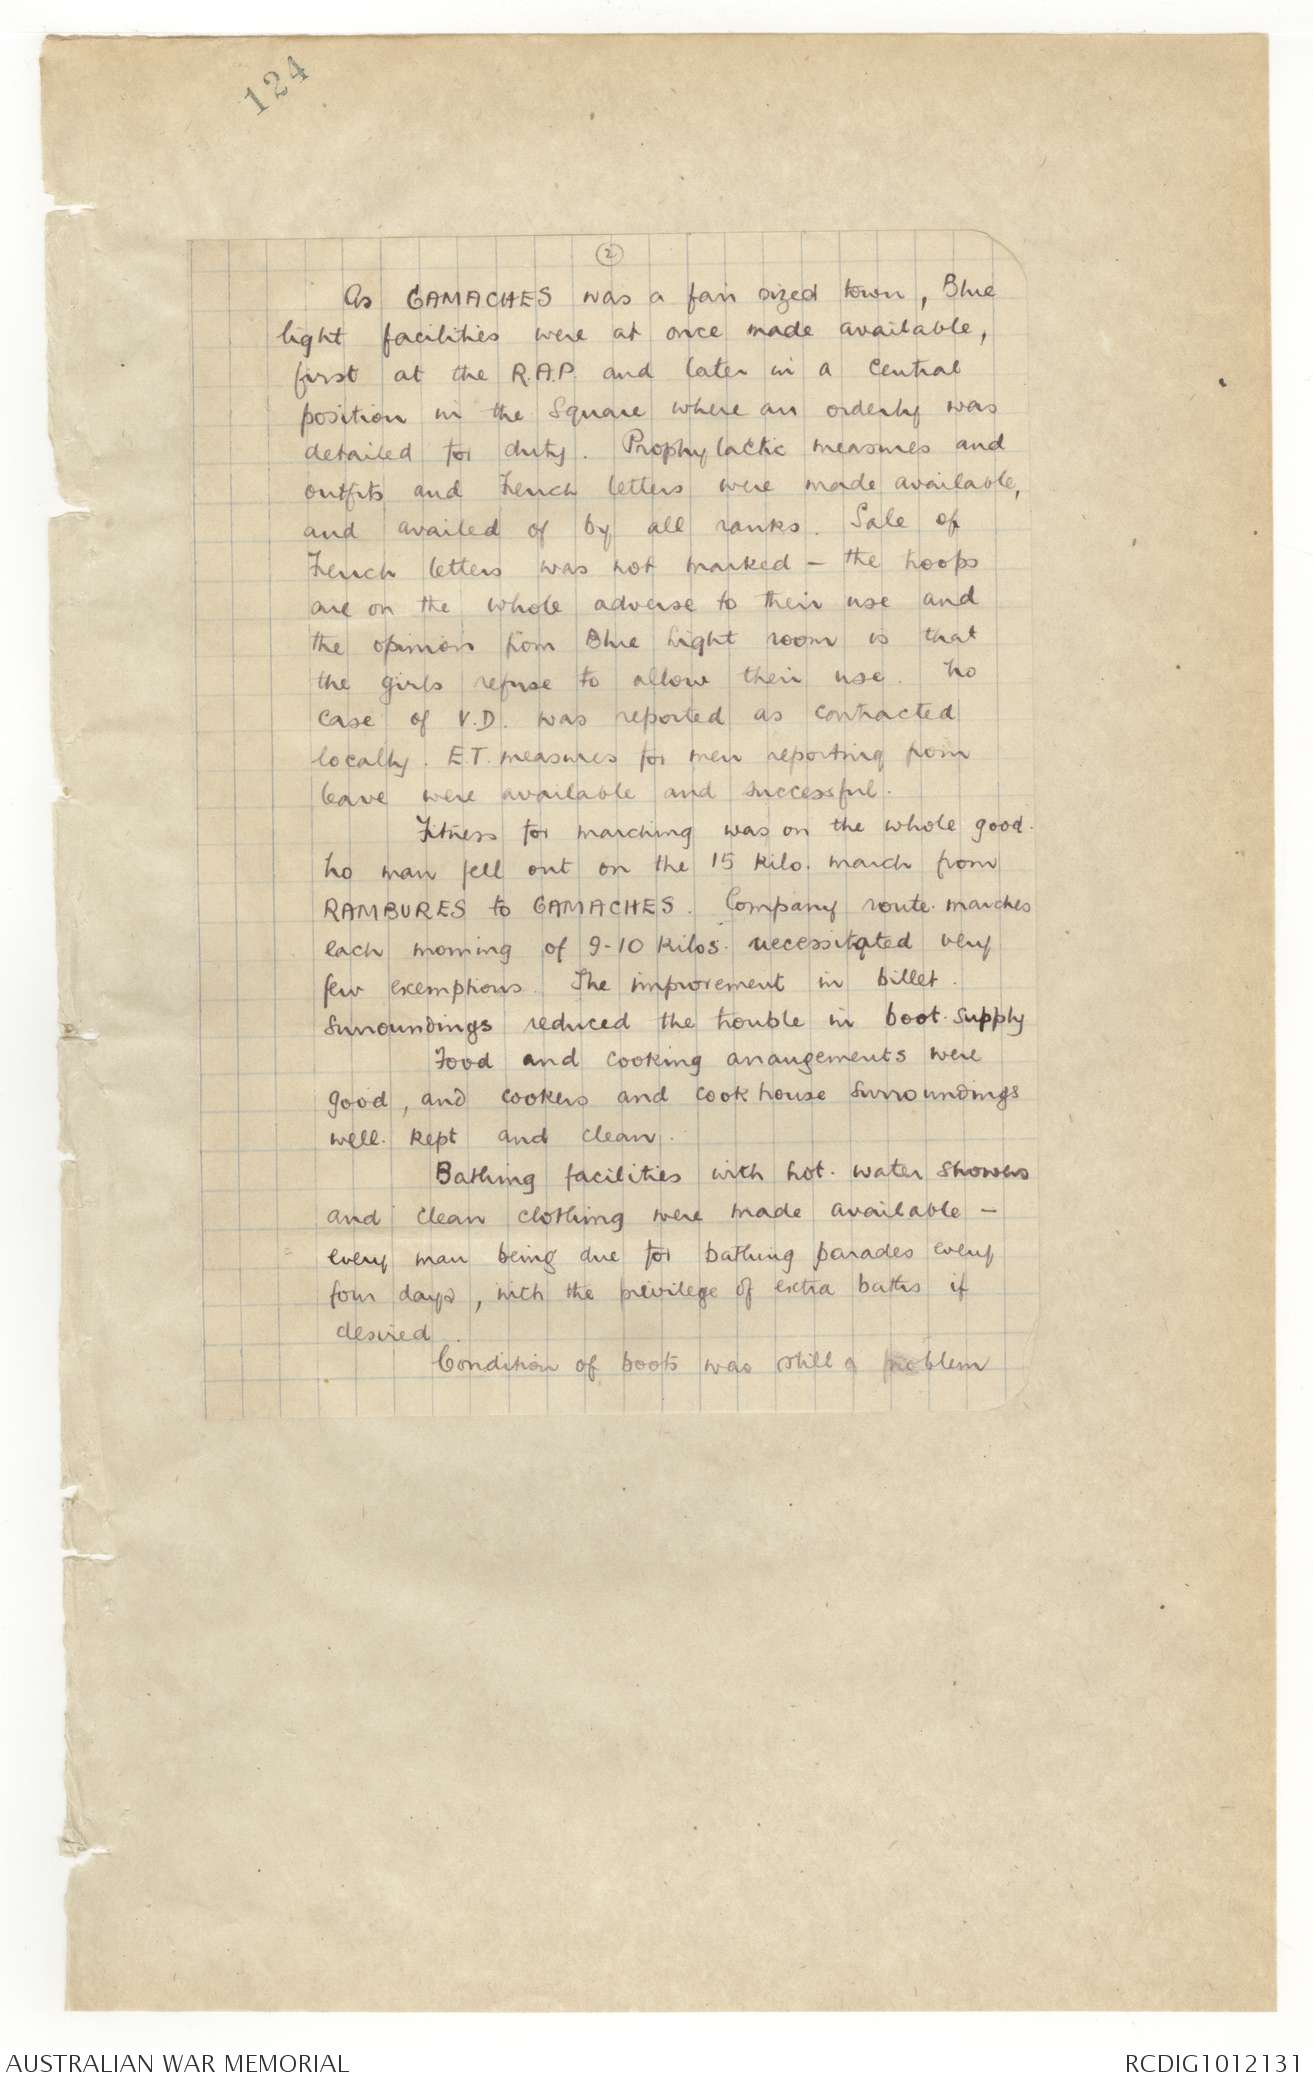 124
2
As GAMACHES was a fair sized town, Blue
light facilities were at once made available,
first at the R.A.P. and later in a central
position in the Square where an orderly was
detailed for duty. Prophylactic measures and
outfits and French letters were made available,
and availed of by all ranks. Sale of
French letters was not marked - the troops
are on the whole adverse to their use and
the opinion from Blue Light room is that
the girls refuse to allow their use. No
case of V.D. was reported as contracted
locally. E.T. measures for men reporting from
leave were available and successful.
Fitness for marching was on the whole good.
No man fell out on the 15 kilo. march from
RAMBURES to GAMACHES. Company route marches
each morning of 9-10 kilos. necessitated very
few exemptions. The improvement in billet
surroundings reduced the trouble in boot supply
Food and cooking arrangements were
good, and cookers and cookhouse surroundings
well kept and clean.
Bathing facilities with hot water showers
and clean clothing were made available -
every man being due for bathing parades every
four days, with the privilege of extra baths if
desired.
Condition of boots was still a problem
AUSTRALIAN WAR MEMORIAL
RCDIG1012131